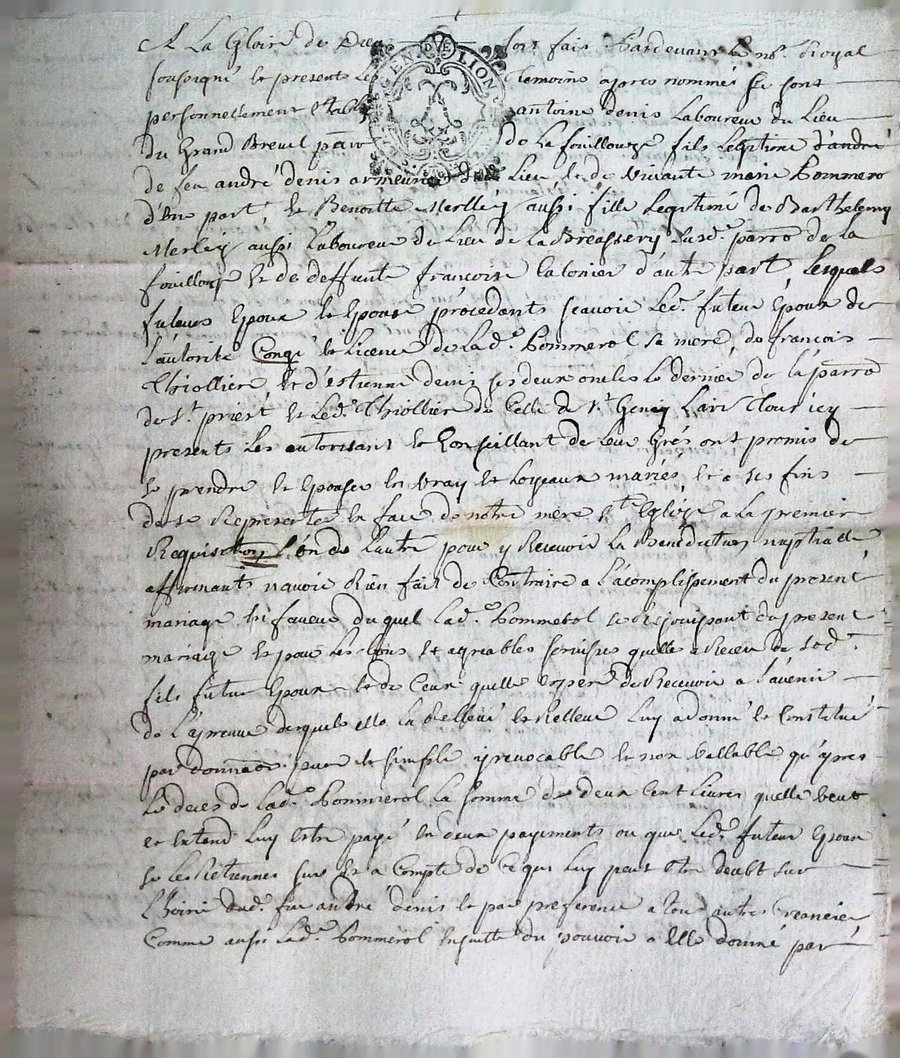 A La Gloire de Dieu soit fait Pardevant le no.re Royal
soussigné et presents les temoins apres nommés se sont
GEN DE LION
personnellement etablis antoine denis Laboureur du Lieu
du Grand Breuil parro de La fouillouze fils Legitime d'andré
de feu andré denis armeurier dud. Lieu et de vivante marie Pommero
d'une part, et Benoitte Merlley aussi fille Legitime de Barthelemy
Merley aussi Laboureur du Lieu de La Breassery susd.e parro de La
fouillouze et de deffunte françoise Calonier d'autre part, Lesquels
futeurs Epoux et Epouse procedants scavoir Led.t futeur Epoux de
l'autorité Congé et Licence de Lad.e Pommerol sa mere, de françois
Thiollier et d'estienne denis ses deux oncles le dernier de la parro
de St. priest et Led.t Thiollier de Celle de St. Geney Lari
presents Les autorisant et Conseillant de Leur Grés ont promis de
se prendre et Epouser en vray et Loyeaux mariés et a ses fins
de se Representer en face de notre mere Ste Eglize a La premiere
Requisition L'un de L'autre pour y Recevoir La Benediction nuptialle
affirmants n'avoir Rien fait de Contraire a l'acomplissement du present
mariage En faveur duquel Lad.e Pommerol se Rejouissant du present
mariage et pour Les bons et agreables services quelle a Receu de sond.t
fils futur Epoux et de Ceux quelle Espere de Recevoir a L'avenir
de L'épreuve desquels elle La Rellevé et Relleve Luy a donné et Constitué
par donnation pure et simple yrevocable et non vallable qu'apres
Le deces de Lad.e Pommerol La somme de deux Cent Livres quelle veut
et Entend Luy Estre payé En deux payements ou que Led.t futeur Epoux
se Les Retiennes sur et a Compte de Ce qui Luy peut Etre deubt sur
L'hoirie dud.t feu andré denis et par preference a tout autres Creancier
Comme aussi Lad.e Pommerol Ensuitte du pouvoir a Elle donné par